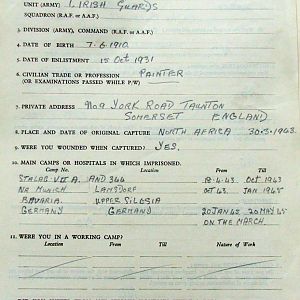 UNIT (ARMY) IRISH GUARDS
SQUADRON (R.A.F. or A.A.F.)
3. DIVISION (ARMY), COMMAND (R.A.F. or A.A.F.)
4. DATE OF BIRTH 7.6.1910.
5. DATE OF ENLISTMENT 15 Oct 1931
6. CIVILIAN TRADE or PROFESSION PAINTER
(OR EXAMINATIONS PASSED WHILE P/W)
7. PRIVATE ADDRESS YORK ROAD TAUNTON
SOMERSET ENGLAND
8. PLACE AND DATE OF ORIGINAL CAPTURE NORTH AFRICA 30.3.1943.
9. WERE YOU WOUNDED WHEN CAPTURED? YES.
10. MAIN CAMPS OR HOSPITALS IN WHICH IMPRISONED.
Camp No. Location From Till
STALAG VII A. AND 344 4.43 OCT 1943
NR MUNICH LAMSDORF OCT 43. JAN 1945
BAVARIA. UPPER SILESIA
GERMANY GERMANY 20 MAY 45
ON THE MARCH.
11. WERE YOU IN A WORKING CAMP?
Location From Till Nature of Work